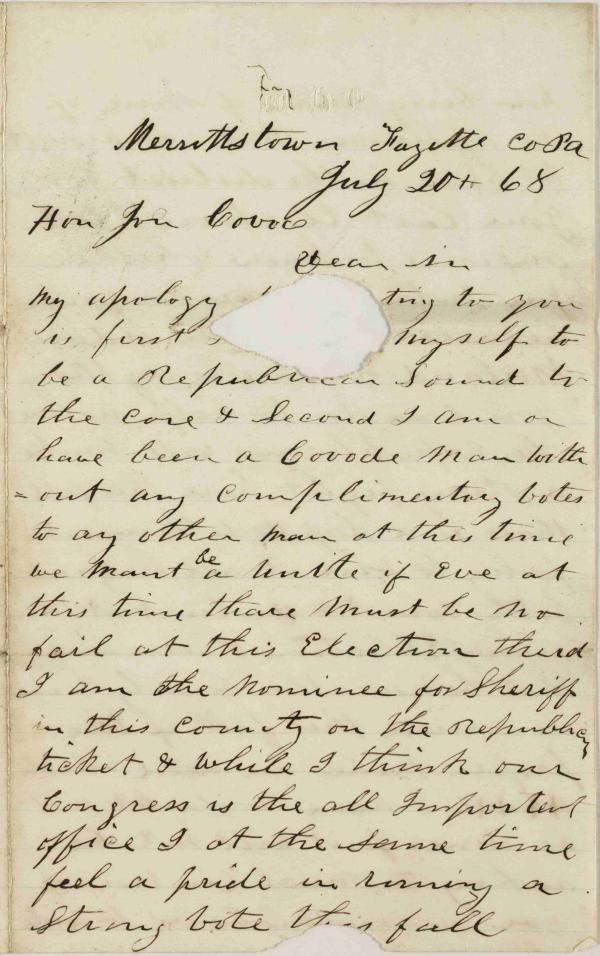 Merrittstown Fayette Co Pa
July 20th 68
Hon Jon Covode
Dear Sir
My apology ting to you
is first myself to
be a Republican Sound to
the core & Second I am or
have been a Covode Man with
= out any Complimentary Votes
to any other man at this time
we Must be a Unite if Eve at
this time thare Must be no
fail at this Election therd
I am the Nominee for Sheriff
in this County on the Republican
ticket & while I think our
Congress is the all Important
office I at the same time
feel a pride in runing a
Strong Vote this fall